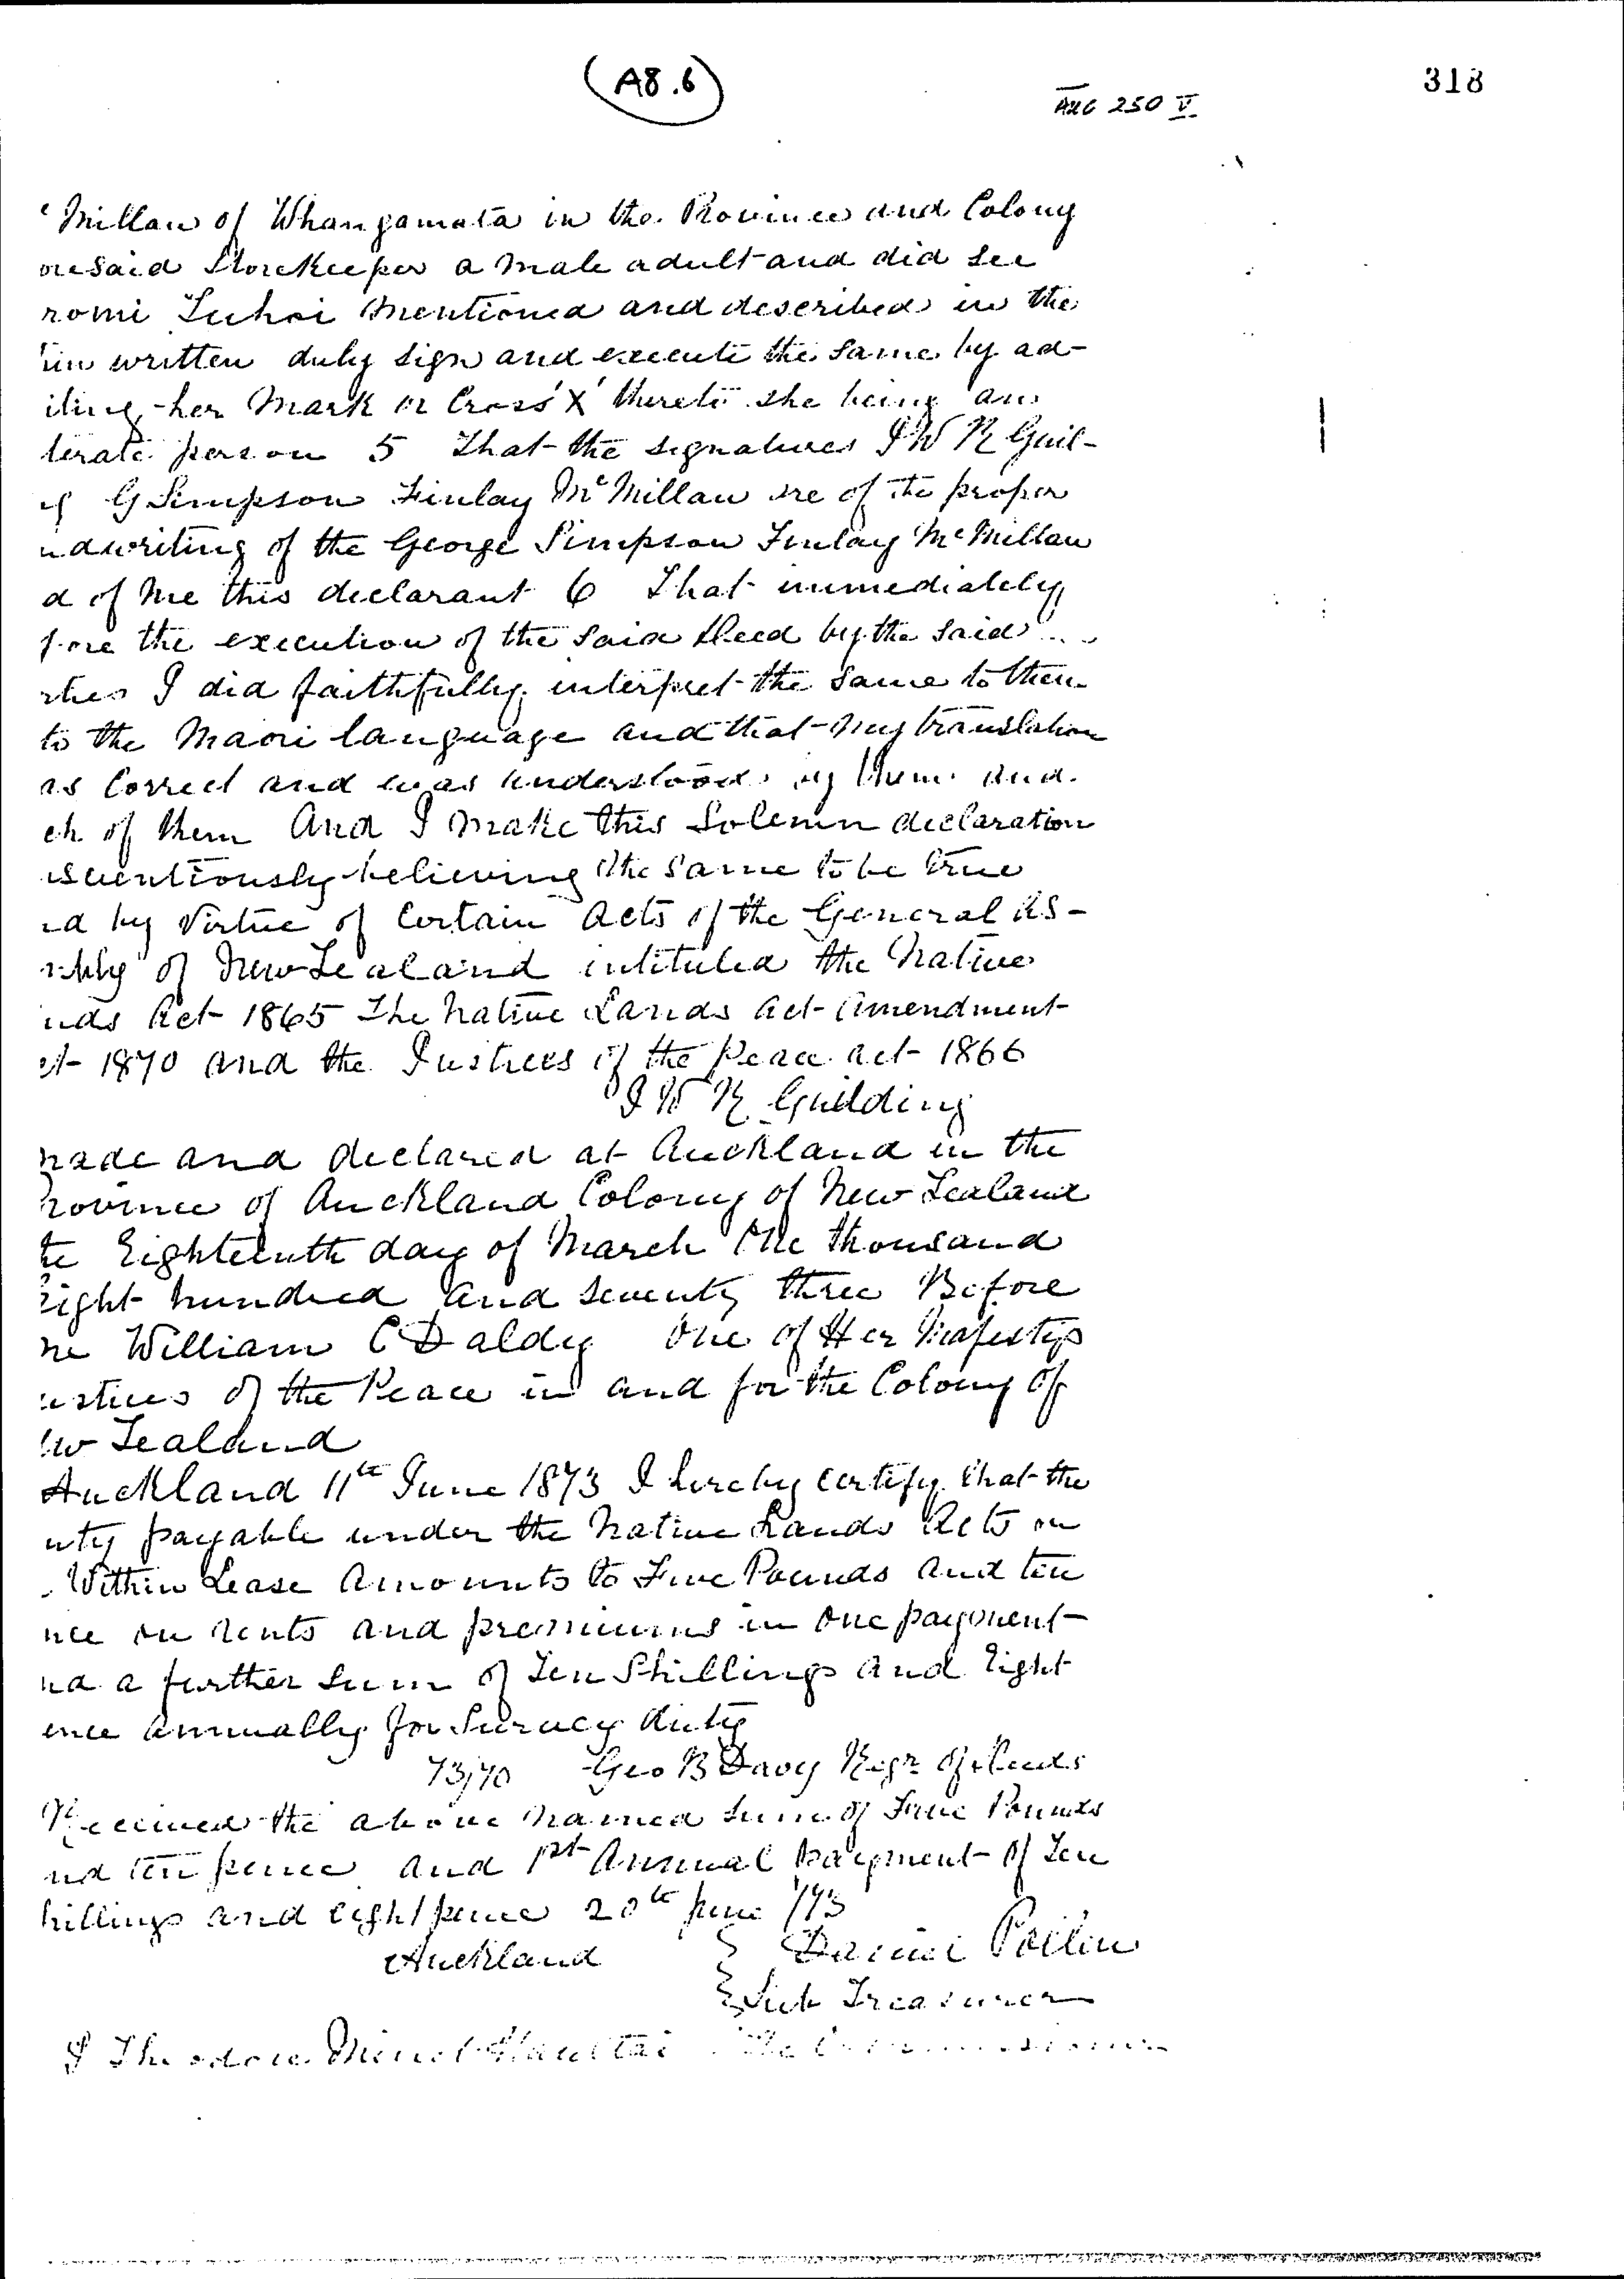 (A8.6)
AUC 250 V
318
Millan of Whangamata in the Province and Colony
oresaid Storekeeper a male adult and did see
romi Tuhoi mentioned and described in the
in written duly sign and execute the same by ad-
iting her mark or Cross 'X' thereto she being an
terate person 5 That the signatures J W R Guil-
g G Simpson Finlay McMillan are of the proper
ndwriting of the George Simpson Finlay McMillan
d of me this declarant 6 That immediately
fore the execution of the said Deed by the said
rties I did faithfully interpret the same to them
to the Maori language and that my translation
as correct and was understood by them and
ch of them And I make this Solemn declaration
scientiously believing the same to be true
nd by Virtue of Certain Acts of the General As-
mbly of New Zealand intituled the Native
nds Act 1865 The Native Lands Act Amendment
ct 1870 and the Justices of the Peace Act 1866
J W R Guilding
made and declared at Auckland in the
Province of Auckland Colony of New Zealand
the Eighteenth day of March One thousand
Eight hundred and seventy three Before
me William C Daldy One of Her Majestys
ustices of the Peace in and for the Colony of
ew Zealand
Auckland 11th June 1873 I hereby certify that the
uty payable under the Native Lands Acts on
Within Lease Amounts to Five Pounds and ten
nce on rents and premiums in one payment
nd a further sum of Ten Shillings and Eight
ence annually for Survey duty
73/70 Geo B Davy Regr of Deeds
Received the above named sum of Five Pounds
nd ten pence and 1st Annual Payment of Ten
hillings and eight pence 20th June /73
Auckland } Daniel Pollen
} Sub Treasurer
I Theodore Minet Haultai the